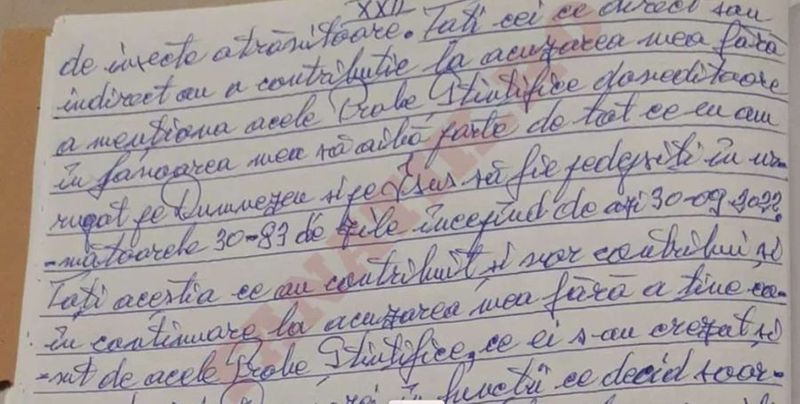 XXII
de insecte otrăvitoare. Toți cei ce direct sau
indirect au o contribuție la acuzarea mea fără
a menționa acele Probe Științifice doveditoare
în favoarea mea să aibă parte de tot ce eu am
rugat pe Dumnezeu și pe Isus să fie pedepsiți în ur-
-mătoarele 30-83 de zile începînd de azi 30-09-2022.
Toți aceștia ce au contribuit și vor contribui și
în continuare la acuzarea mea fără a ține co-
-nt de acele Probe Științifice, ce ei s-au crezut și
în funcții ce decid soar-